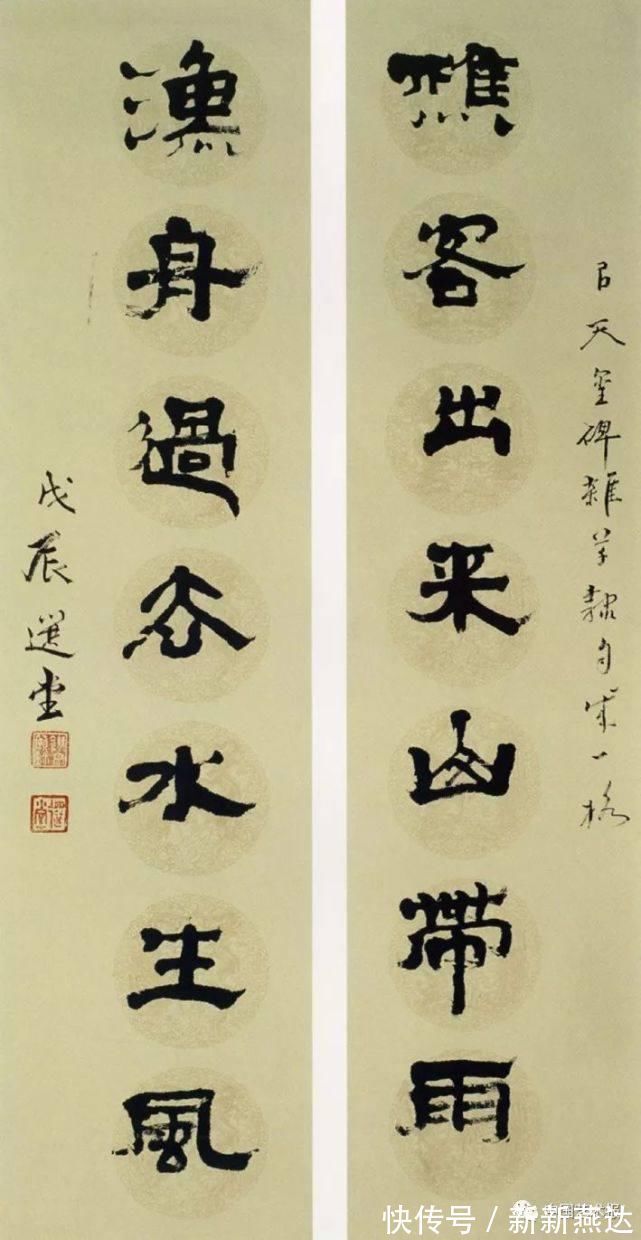 㠯天璽碑雜草隸自成一格
樵客出来山帶雨
漁舟過去水生風
戊辰選堂
選堂
快传号 / 新新燕达